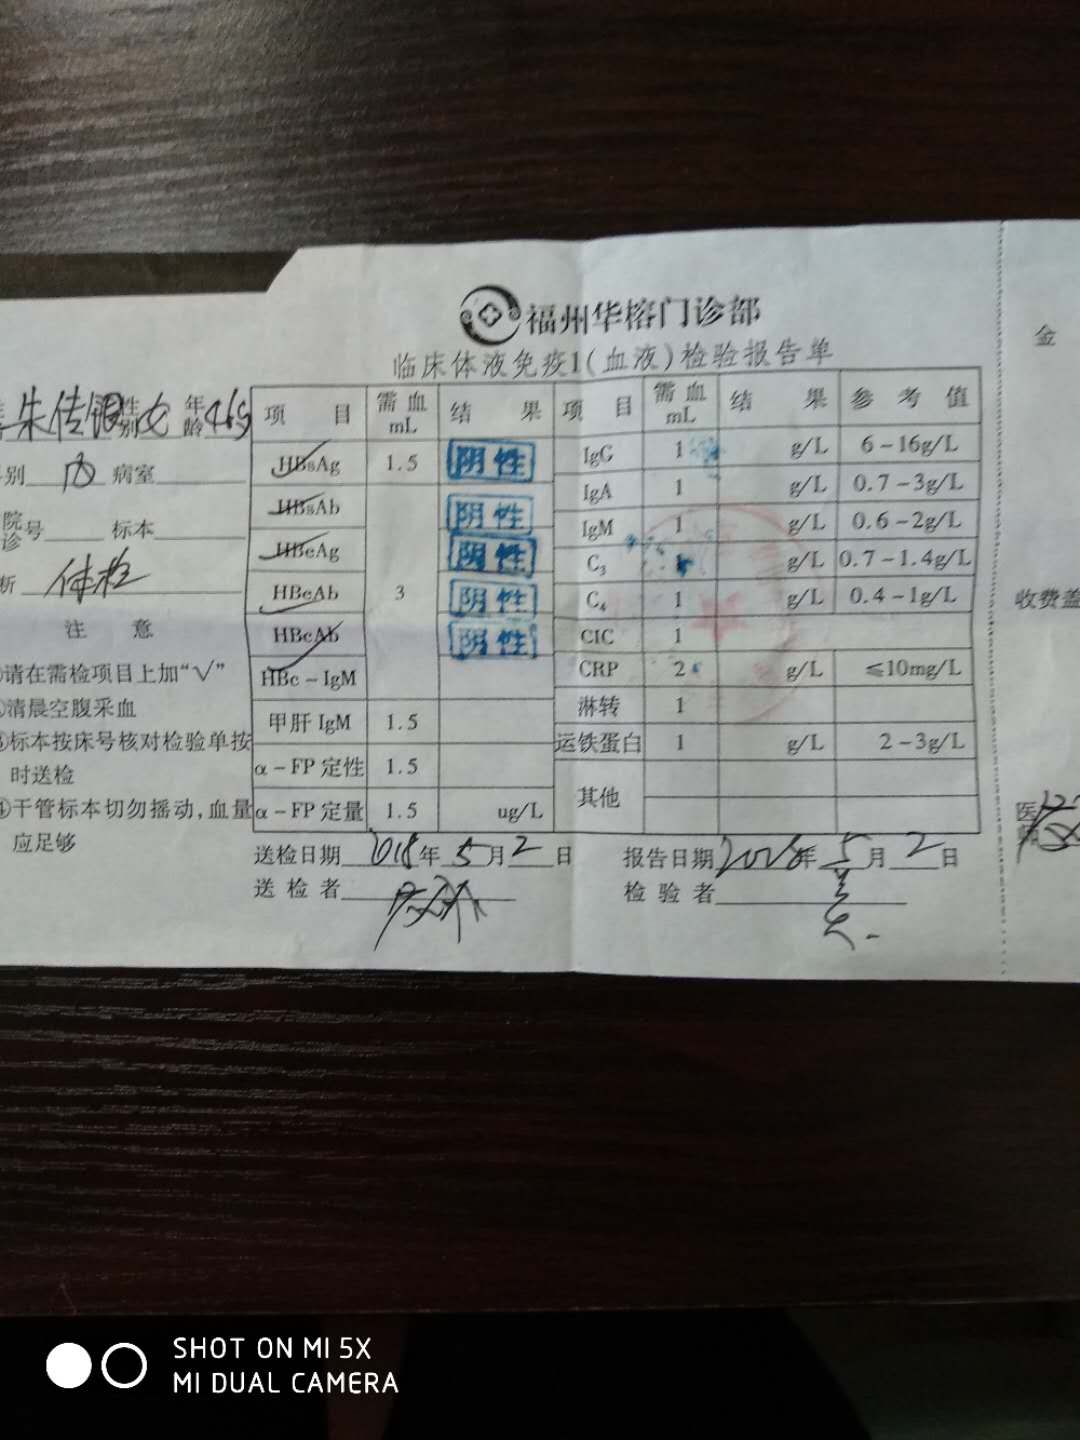 福州华榕门诊部
临床体液免疫1(血液)检验报告单
朱传 性别 女 年龄 46岁
别 内 病室
院 诊 号 标本
断 体检
注 意
请在需检项目上加“√”
清晨空腹采血
③标本按床号核对检验单按
时送检
④干管标本切勿摇动,血量
应足够
项 目 需血mL 结 果 项 目 需血mL 结 果 参 考 值
HBsAg 1.5 阴性 IgG 1 g/L 6-16g/L
HBsAb 阴性 IgA 1 g/L 0.7-3g/L
HBeAg 阴性 IgM 1 g/L 0.6-2g/L
HBeAb 3 阴性 C₃ 1 g/L 0.7-1.4g/L
HBcAb 阴性 C₄ 1 g/L 0.4-1g/L
CIC 1
HBc-IgM CRP 2 g/L ≤10mg/L
甲肝IgM 1.5 淋转 1
α-FP定性 1.5 运铁蛋白 1 g/L 2-3g/L
α-FP定量 1.5 ug/L 其他
送检日期 2018年5月2日 报告日期 年5月2日
送检者 检验者
金
收费盖
医
SHOT ON MI 5X
MI DUAL CAMERA